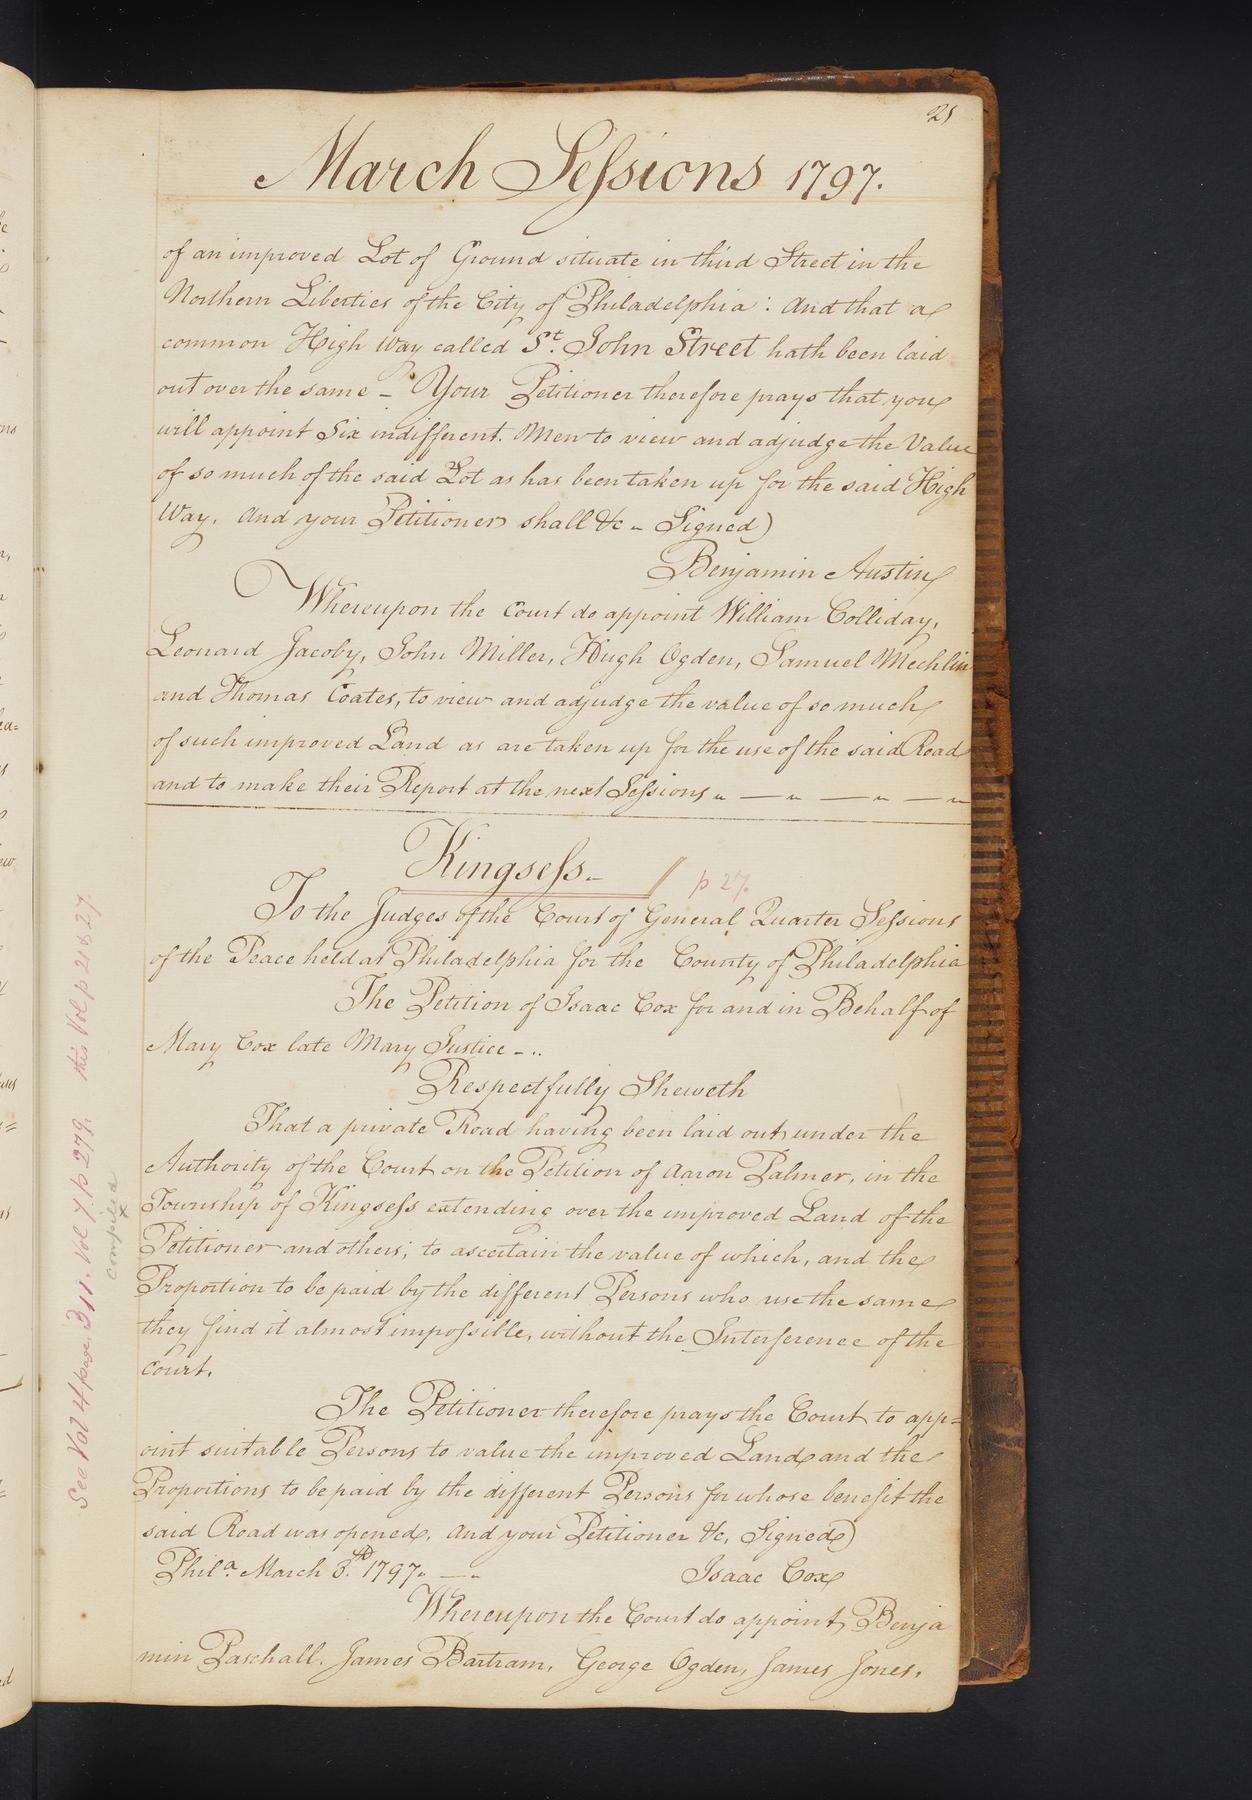 21
March Sessions 1797.
of an improved Lot of Ground situate in third Street in the
Northern Liberties of the City of Philadelphia: And that a
common High Way called St. John Street hath been laid
out over the same – Your Petitioner therefore prays that you
will appoint Six indifferent Men to view and adjudge the Value
of so much of the said Lot as has been taken up for the said High
Way. And your Petitioner shall &c – Signed)
Benjamin Austin
Whereupon the Court do appoint William Colliday,
Leonard Jacoby, John Miller, Hugh Ogden, Samuel Mechlin
and Thomas Coates, to view and adjudge the value of so much
of such improved Land as are taken up for the use of the said Road
and to make their Report at the next Sessions
Kingsess – p 27.
To the Judges of the Court of General Quarter Sessions
of the Peace held at Philadelphia for the County of Philadelphia
The Petition of Isaac Cox for and in Behalf of
Mary Cox late Mary Justice –
Respectfully Sheweth
That a private Road having been laid out under the
Authority of the Court on the Petition of Aaron Palmer, in the
Township of Kingsess extending over the improved Land of the
Petitioner and others; to ascertain the value of which, and the
Proportion to be paid by the different Persons who use the same
they find it almost impossible, without the Interference of the
Court.
The Petitioner therefore prays the Court to app=
oint suitable Persons to value the improved Land and the
Proportions to be paid by the different Persons for whose benefit the
said Road was opened. And your Petitioner &c, Signed)
Phila. March 3d. 1797. Isaac Cox
Whereupon the Court do appoint Benja
min Paschall. James Bartram, George Ogden, James Jones,
See Vol 4 page 311. Vol 7 p 279. this Vol p 21 & 27.
compiled